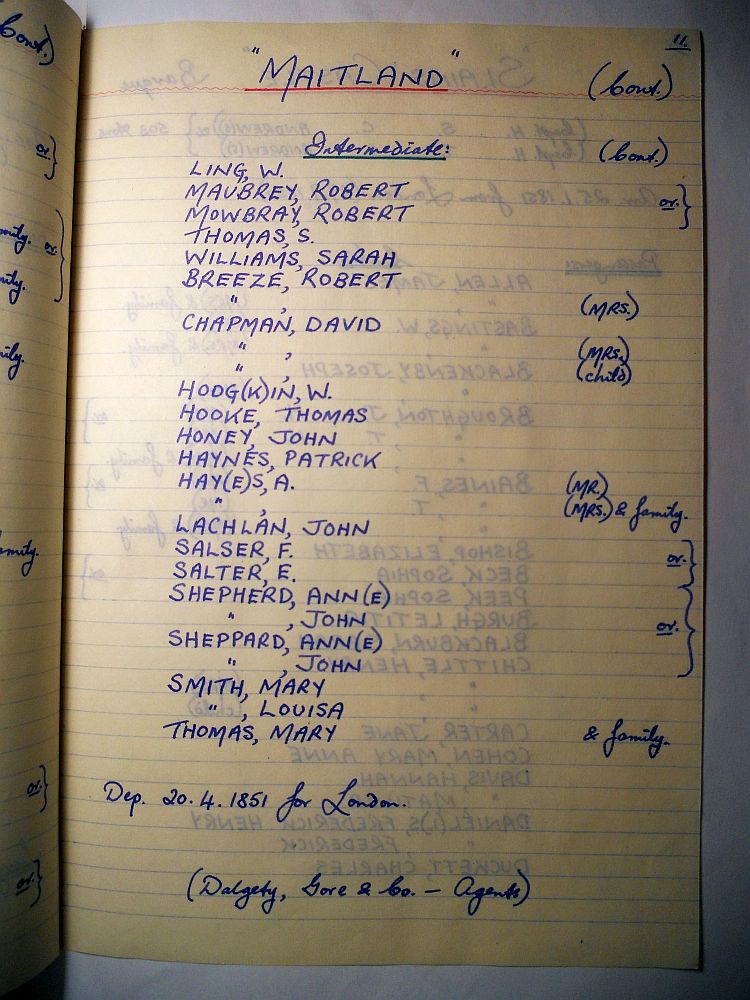 11.
"MAITLAND" (Cont.)
Intermediate: (Cont.)
LING, W.
MAUBREY, ROBERT or.
MOWBRAY, ROBERT
THOMAS, S.
WILLIAMS, SARAH
BREEZE, ROBERT
" , (MRS.)
CHAPMAN, DAVID
" , (MRS.)
" , (child)
HODG(K)IN, W.
HOOKE, THOMAS
HONEY, JOHN
HAYNES, PATRICK
HAY(E)S, A. (MR.)
" , (MRS.) & family.
LACHLAN, JOHN
SALSER, F. or.
SALTER, E.
SHEPHERD, ANN(E)
" , JOHN or.
SHEPPARD, ANN(E)
" , JOHN
SMITH, MARY
" , LOUISA
THOMAS, MARY & family.
Dep. 20.4.1851 for London.
(Dalgety, Gore & Co. – Agents)